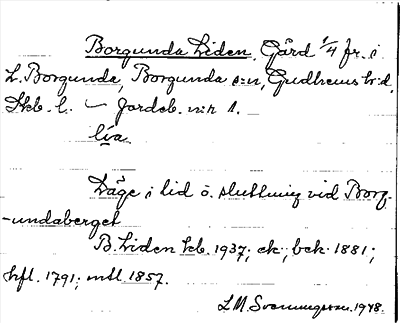 Borgunda Liden, Gård 1/4 fr. i
L. Borgunda, Borgunda s:n, Gudhems h:d,
Skb. l. – Jordeb. n:r 1.
lía
Läge i lid ö. sluttning vid Borg-
-undaberget
B. Liden kb. 1937; ek., bek. 1881;
hfl. 1791; mtl 1857.
L. M. Svenungsson. 1948.